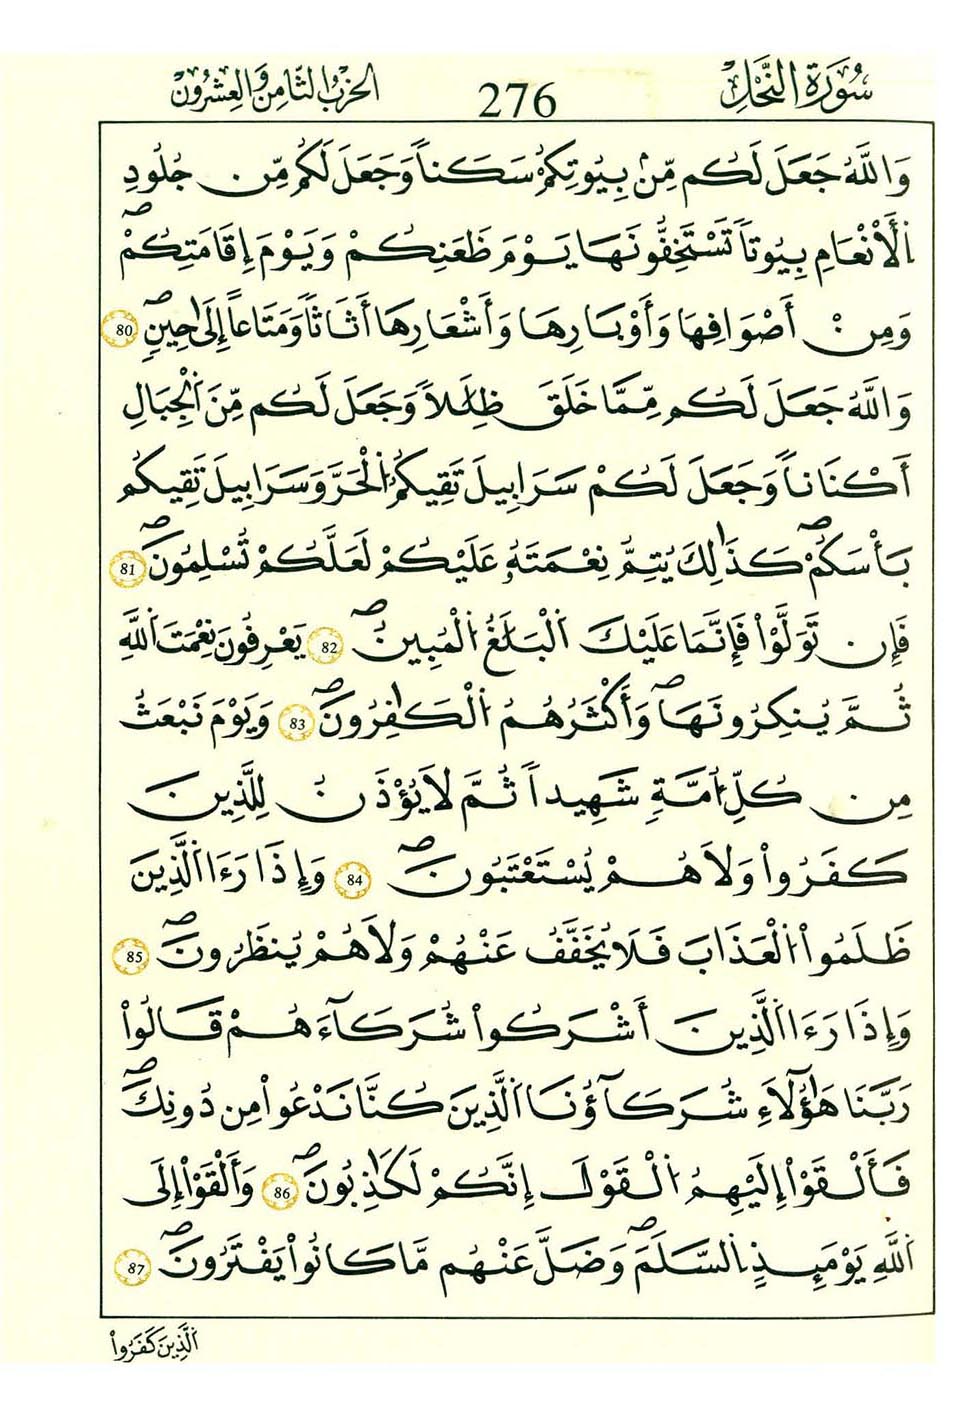 سُورَةُ النَّحْلِ 276 الحِزْبُ الثَّامِنُ وَالْعِشْرُونَ
وَاللَّهُ جَعَلَ لَكُم مِّنۢ بِيُوتِكُمْ سَكَناً وَجَعَلَ لَكُم مِّن جُلُودِ
اِ۬لَانْعَٰمِ بِيُوتاً تَسْتَخِفُّونَهَا يَوْمَ ظَعَنِكُمْ وَيَوْمَ إِقَامَتِكُمْ
وَمِنْ أَصْوَافِهَا وَأَوْبَارِهَا وَأَشْعَارِهَا أَثَاثاً وَمَتَاعاً إِلَىٰ حِينٍ 80
وَاللَّهُ جَعَلَ لَكُم مِّمَّا خَلَقَ ظِلَٰلاً وَجَعَلَ لَكُم مِّنَ اَ۬لْجِبَالِ
أَكْنَاناً وَجَعَلَ لَكُمْ سَرَابِيلَ تَقِيكُمُ اُ۬لْحَرَّ وَسَرَابِيلَ تَقِيكُم
بَأْسَكُمْ كَذَٰلِكَ يُتِمُّ نِعْمَتَهُۥ عَلَيْكُمْ لَعَلَّكُمْ تُسْلِمُونَ 81
فَإِن تَوَلَّوْاْ فَإِنَّمَا عَلَيْكَ اَ۬لْبَلَٰغُ اُ۬لْمُبِينُ 82 يَعْرِفُونَ نِعْمَتَ اَ۬للَّهِ
ثُمَّ يُنكِرُونَهَا وَأَكْثَرُهُمُ اُ۬لْكَٰفِرُونَ 83 وَيَوْمَ نَبْعَثُ
مِن كُلِّ أُمَّةٍ شَهِيداً ثُمَّ لَا يُؤْذَنُ لِلَّذِينَ
كَفَرُواْ وَلَا هُمْ يُسْتَعْتَبُونَ 84 وَإِذَا رَءَا اَ۬لَّذِينَ
ظَلَمُواْ اُ۬لْعَذَابَ فَلَا يُخَفَّفُ عَنْهُمْ وَلَا هُمْ يُنظَرُونَ 85
وَإِذَا رَءَا اَ۬لَّذِينَ أَشْرَكُواْ شُرَكَآءَهُمْ قَالُواْ
رَبَّنَا هَٰٓؤُلَآءِ شُرَكَآؤُنَا اَ۬لَّذِينَ كُنَّا نَدْعُواْ مِن دُونِكَ
فَأَلْقَوْاْ إِلَيْهِمُ اُ۬لْقَوْلَ إِنَّكُمْ لَكَٰذِبُونَ 86 وَأَلْقَوْاْ إِلَى
اَ۬للَّهِ يَوْمَئِذٍ اِ۬لسَّلَمَ وَضَلَّ عَنْهُم مَّا كَانُواْ يَفْتَرُونَ 87
اَ۬لَّذِينَ كَفَرُواْ